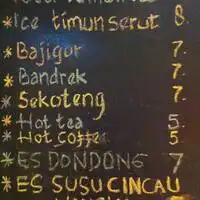 *Ice timun serut 8.
*Bajigur 7.
*Bandrek 7.
*Sekoteng 7.
*Hot tea 5.
*Hot coffee 5
*ES DONDONG 7
*ES SUSU CINCAU